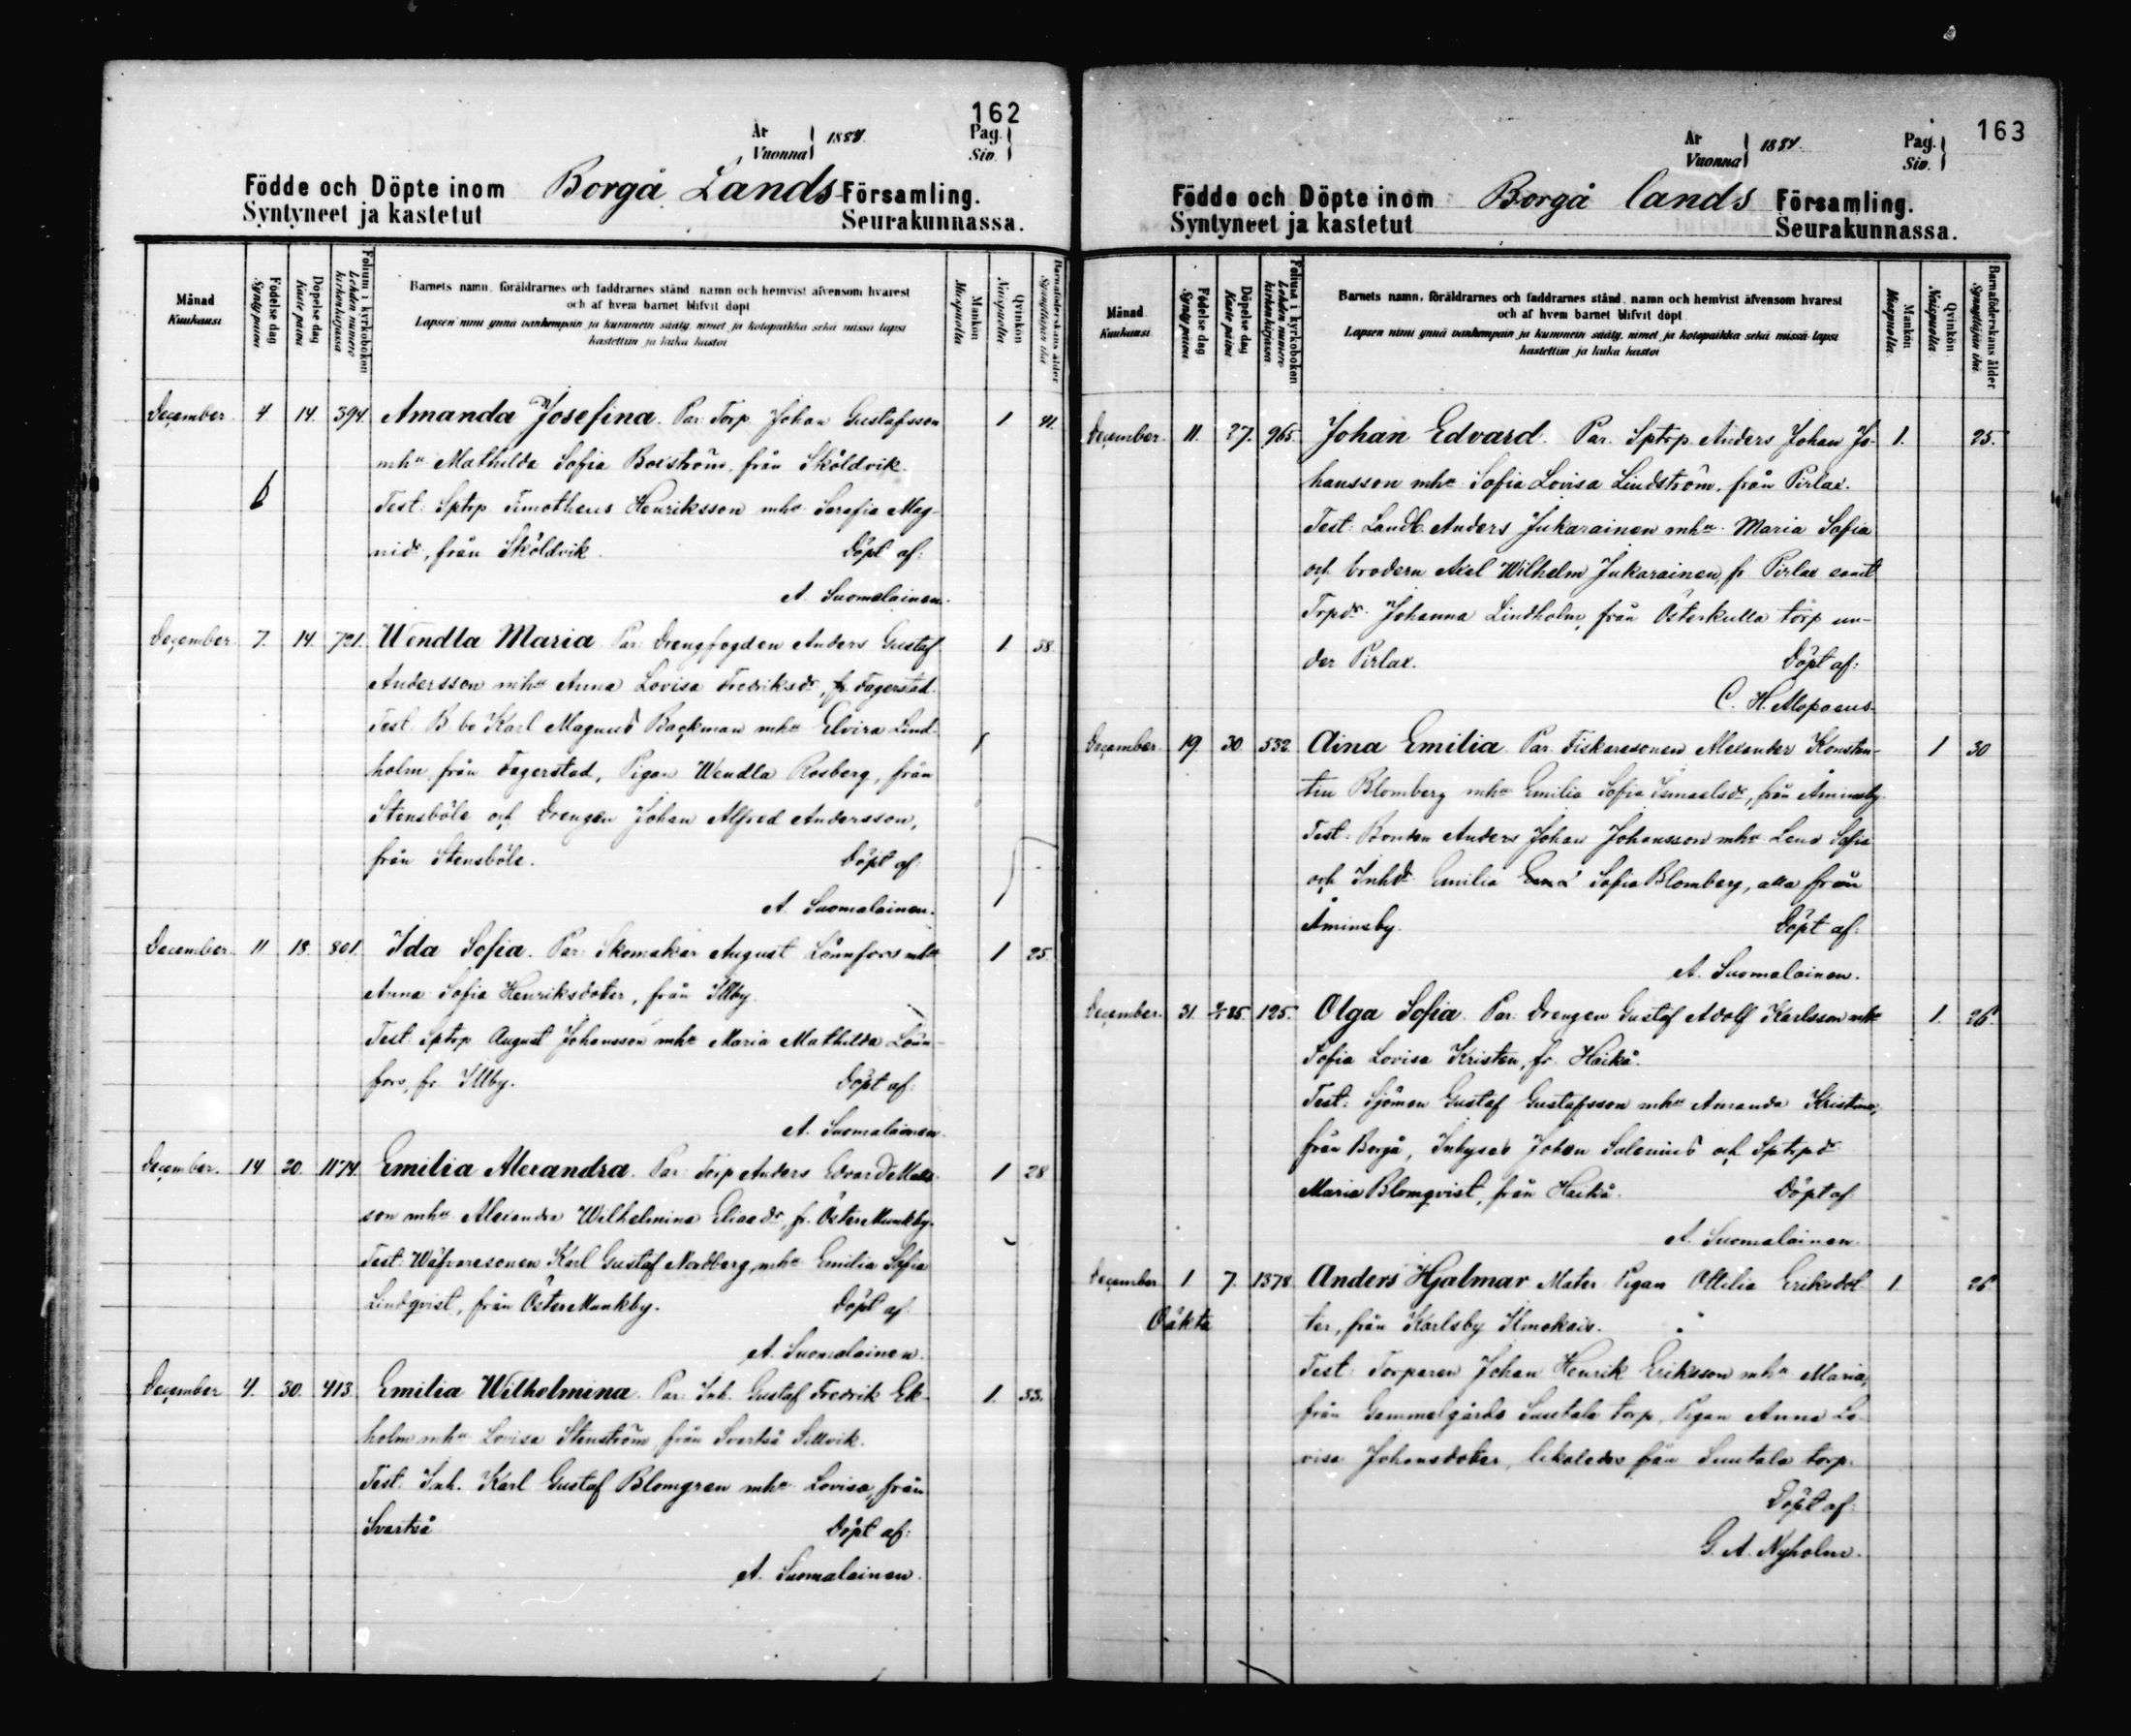 162
År
Vuonna 1884.
Pag.
Siv.
Födde och Döpte inom Borgå Lands Församling.
Syntyneet ja kastetut Seurakunnassa.
Månad
Kuukausi
Födelse dag
Synty päivä
Döpelse dag
Kaste päivä
Folium i kyrkoboken
Lehden numero kirkonkirjassa
Barnets namn, föräldrarnes och faddrarnes stånd, namn och hemvist äfvensom hvarest
och af hvem barnet blifvit döpt
Lapsen nimi ynnä vanhempain ja kummein sääty, nimet ja kotopaikka sekä missä lapsi
kastettiin ja kuka kastoi
Mankön
Miespuolia
Qvinkön
Naispuolia
Barnaföderskans ålder
Synnyttäjän ikä
December 4. 14. 394. Amanda Josefina. Par: Torp. Johan Gustafsson 1 41.
mhu Mathilda Sofia Boxström, från Sköldvik.
Test: Sptrp Timotheus Henriksson mhu Serafia Mag-
nidr, från Sköldvik. Döpt af:
A. Suomalainen.
December 7. 14. 721. Wendla Maria. Par: Drengfogden Anders Gustaf 1. 38.
Andersson mhu Anna Lovisa Fredriksdr, fr. Fagerstad.
Test: B bo Karl Magnus Backman mhu Elvira Lind-
holm från Fagerstad, Pigan Wendla Rosberg, från
Stensböle och Drengen Johan Alfred Andersson,
från Stensböle. Döpt af:
A. Suomalainen.
December. 11 18. 801. Ida Sofia. Par: Skomakar August Lönnfors mhu 1 25.
Anna Sofia Henriksdoter, från Illby.
Test: Sptrp August Johansson mhu Maria Mathilda Lönn-
fors, fr. Illby. Döpt af:
A. Suomalainen.
December. 14 20. 1174. Emilia Alexandra. Par: Torp Anders Edvard Mats- 1 28
son mhu Alexandra Wilhelmina Eliaedr, fr. Östermunkby.
Test: Wäfvaresonen Karl Gustaf Nordberg, mhu Emilia Sofia
Lindqvist, från Östermunkby. Döpt af
A. Suomalainen.
December 4. 30. 413. Emilia Wilhelmina. Par: Inh. Gustaf Fredrik Ek- 1. 33.
holm mhu Lovisa Stenström, från Svartså Sillvik.
Test: Inh. Karl Gustaf Blomgren mhu Lovisa, från
Svartså Döpt af:
A. Suomalainen.
163
År
Vuonna 1884.
Pag.
Siv.
Födde och Döpte inom Borgå lands Församling.
Syntyneet ja kastetut Seurakunnassa.
Månad
Kuukausi
Födelse dag
Synty päivä
Döpelse dag
Kaste päivä
Folium i kyrkoboken
Lehden numero kirkonkirjassa
Barnets namn, föräldrarnes och faddrarnes stånd, namn och hemvist äfvensom hvarest
och af hvem barnet blifvit döpt
Lapsen nimi ynnä vanhempain ja kummein sääty, nimet ja kotopaikka sekä missä lapsi
kastettiin ja kuka kastoi
Mankön
Miespuolia
Qvinkön
Naispuolia
Barnaföderskans ålder
Synnyttäjän ikä
December. 11. 27. 965. Johan Edvard. Par. Sptrp. Anders Johan Jo- 1. 25.
hansson mhu Sofia Lovisa Lindström, från Pirlax.
Test: Landb. Anders Jukarainen mhu Maria Sofia
och brodern Axel Wilhelm Jukarainen, fr Pirlax samt
Trpdr Johanna Lindholm, från Österkulla torp un-
der Pirlax. Döpt af:
C. H. Alopaeus.
December. 19 30 532. Aina Emilia. Par: Fiskaresonen Alexander Konstan- 1 30
tin Blomberg mhu Emilia Sofia Ismaelsdr, från Åminsby.
Test: Bonden Anders Johan Johansson mhu Lena Sofia
och Inhdr Emilia Sofia Blomberg, alla från
Åminsby. Döpt af:
A. Suomalainen.
December. 31. 85. 125. Olga Sofia. Par: Drengen Gustaf Adolf Karlsson mhu 1. 26.
Sofia Lovisa Kristen, fr. Haikå.
Test: Sjöman Gustaf Gustafsson mhu Amanda Kristina,
från Borgå, Inhyses Johan Salenius och Sptrpdr
Maria Blomqvist, från Haikå. Döpt af:
A. Suomalainen.
December 1. 7. 1378. Anders Hjalmar. Mater Pigan Ottilia Eriksdot- 1. 26.
Oäkta ter, från Karlsby Ilmokais.
Test: Torparen Johan Henrik Eriksson mhu Maria,
från Gammelgårds Suutala torp, Pigan Anna Lo-
visa Johansdoter, likaledes från Suutala torp.
Döpt af:
G. A. Nyholm.